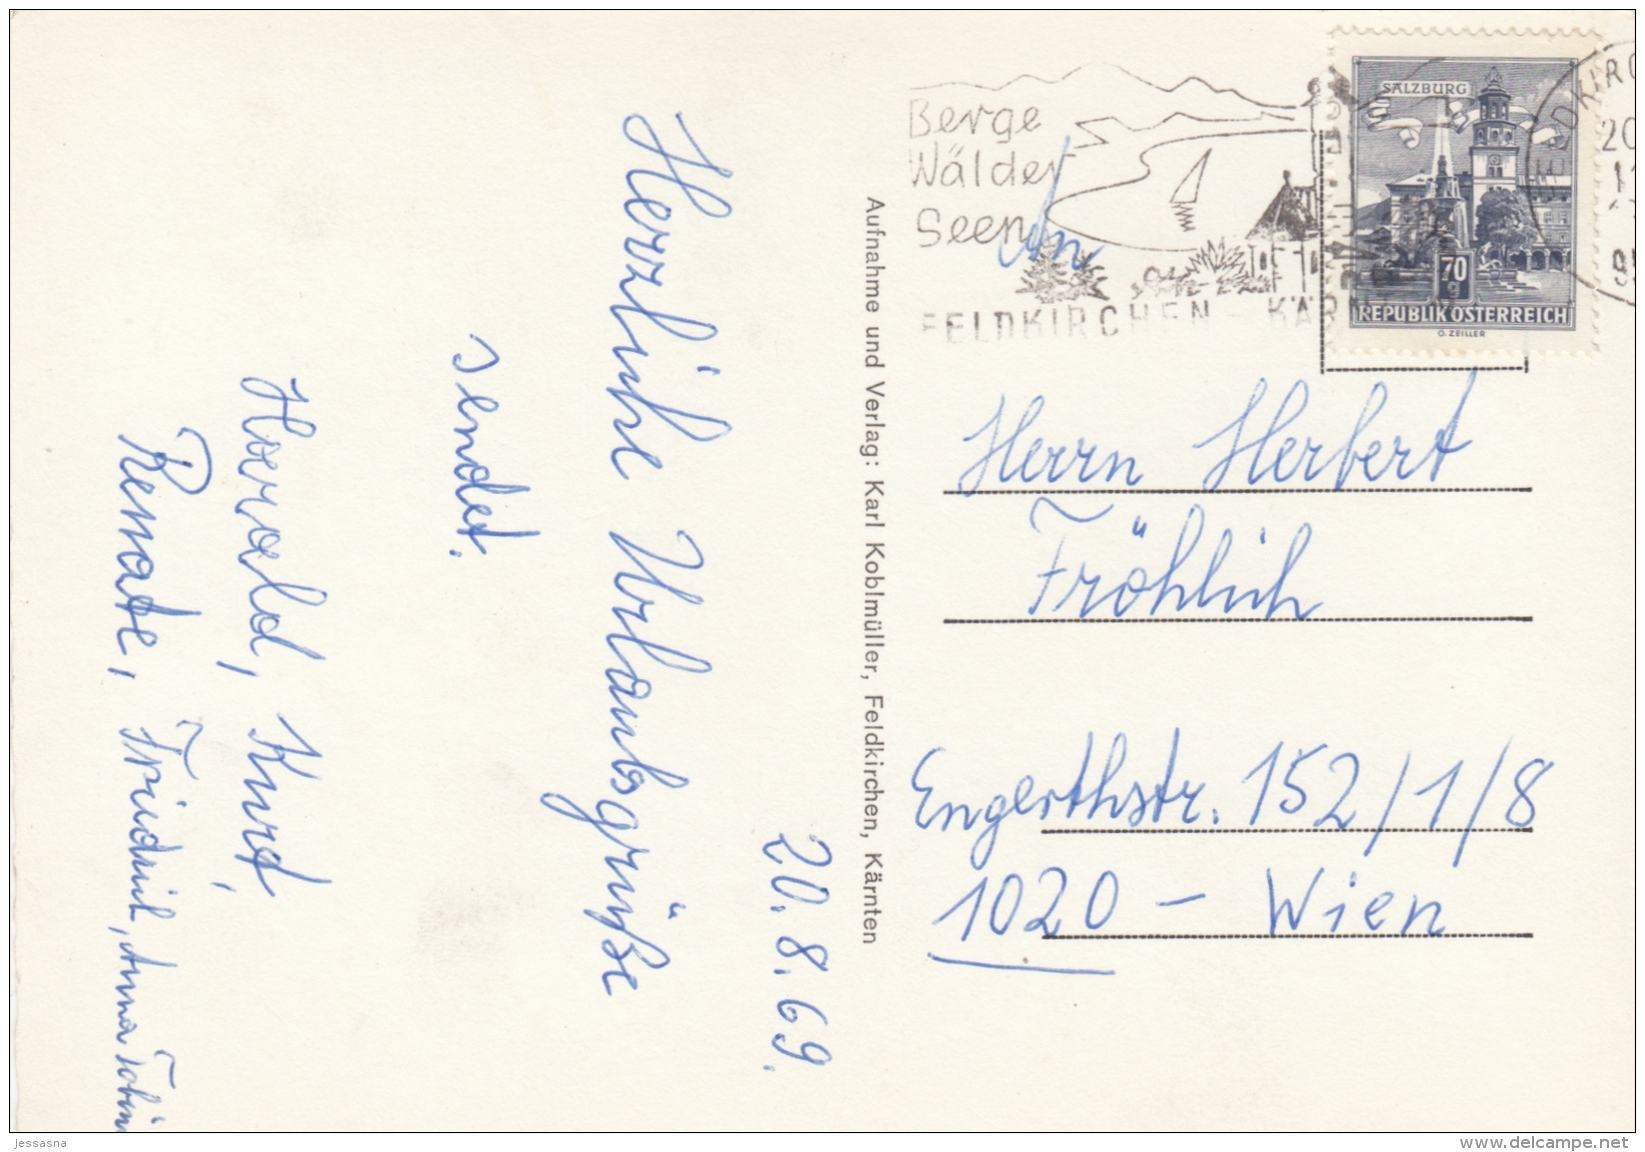 20. 8. 69.
Herzliche Urlaubsgrüße
sendet.
Herald, Kurt,
Renate, Friedrich, Anna
Aufnahme und Verlag: Karl Koblmüller, Feldkirchen, Kärnten
Berge
Wälder
Seen
FELDKIRCHEN - KÄR
SALZBURG
70
g
REPUBLIK ÖSTERREICH
O. ZEILLER
FELDKIRC
20
An
Herrn Herbert
Fröhlich
Engerthstr. 152/1/8
1020 - Wien
jessasna
www.delcampe.net